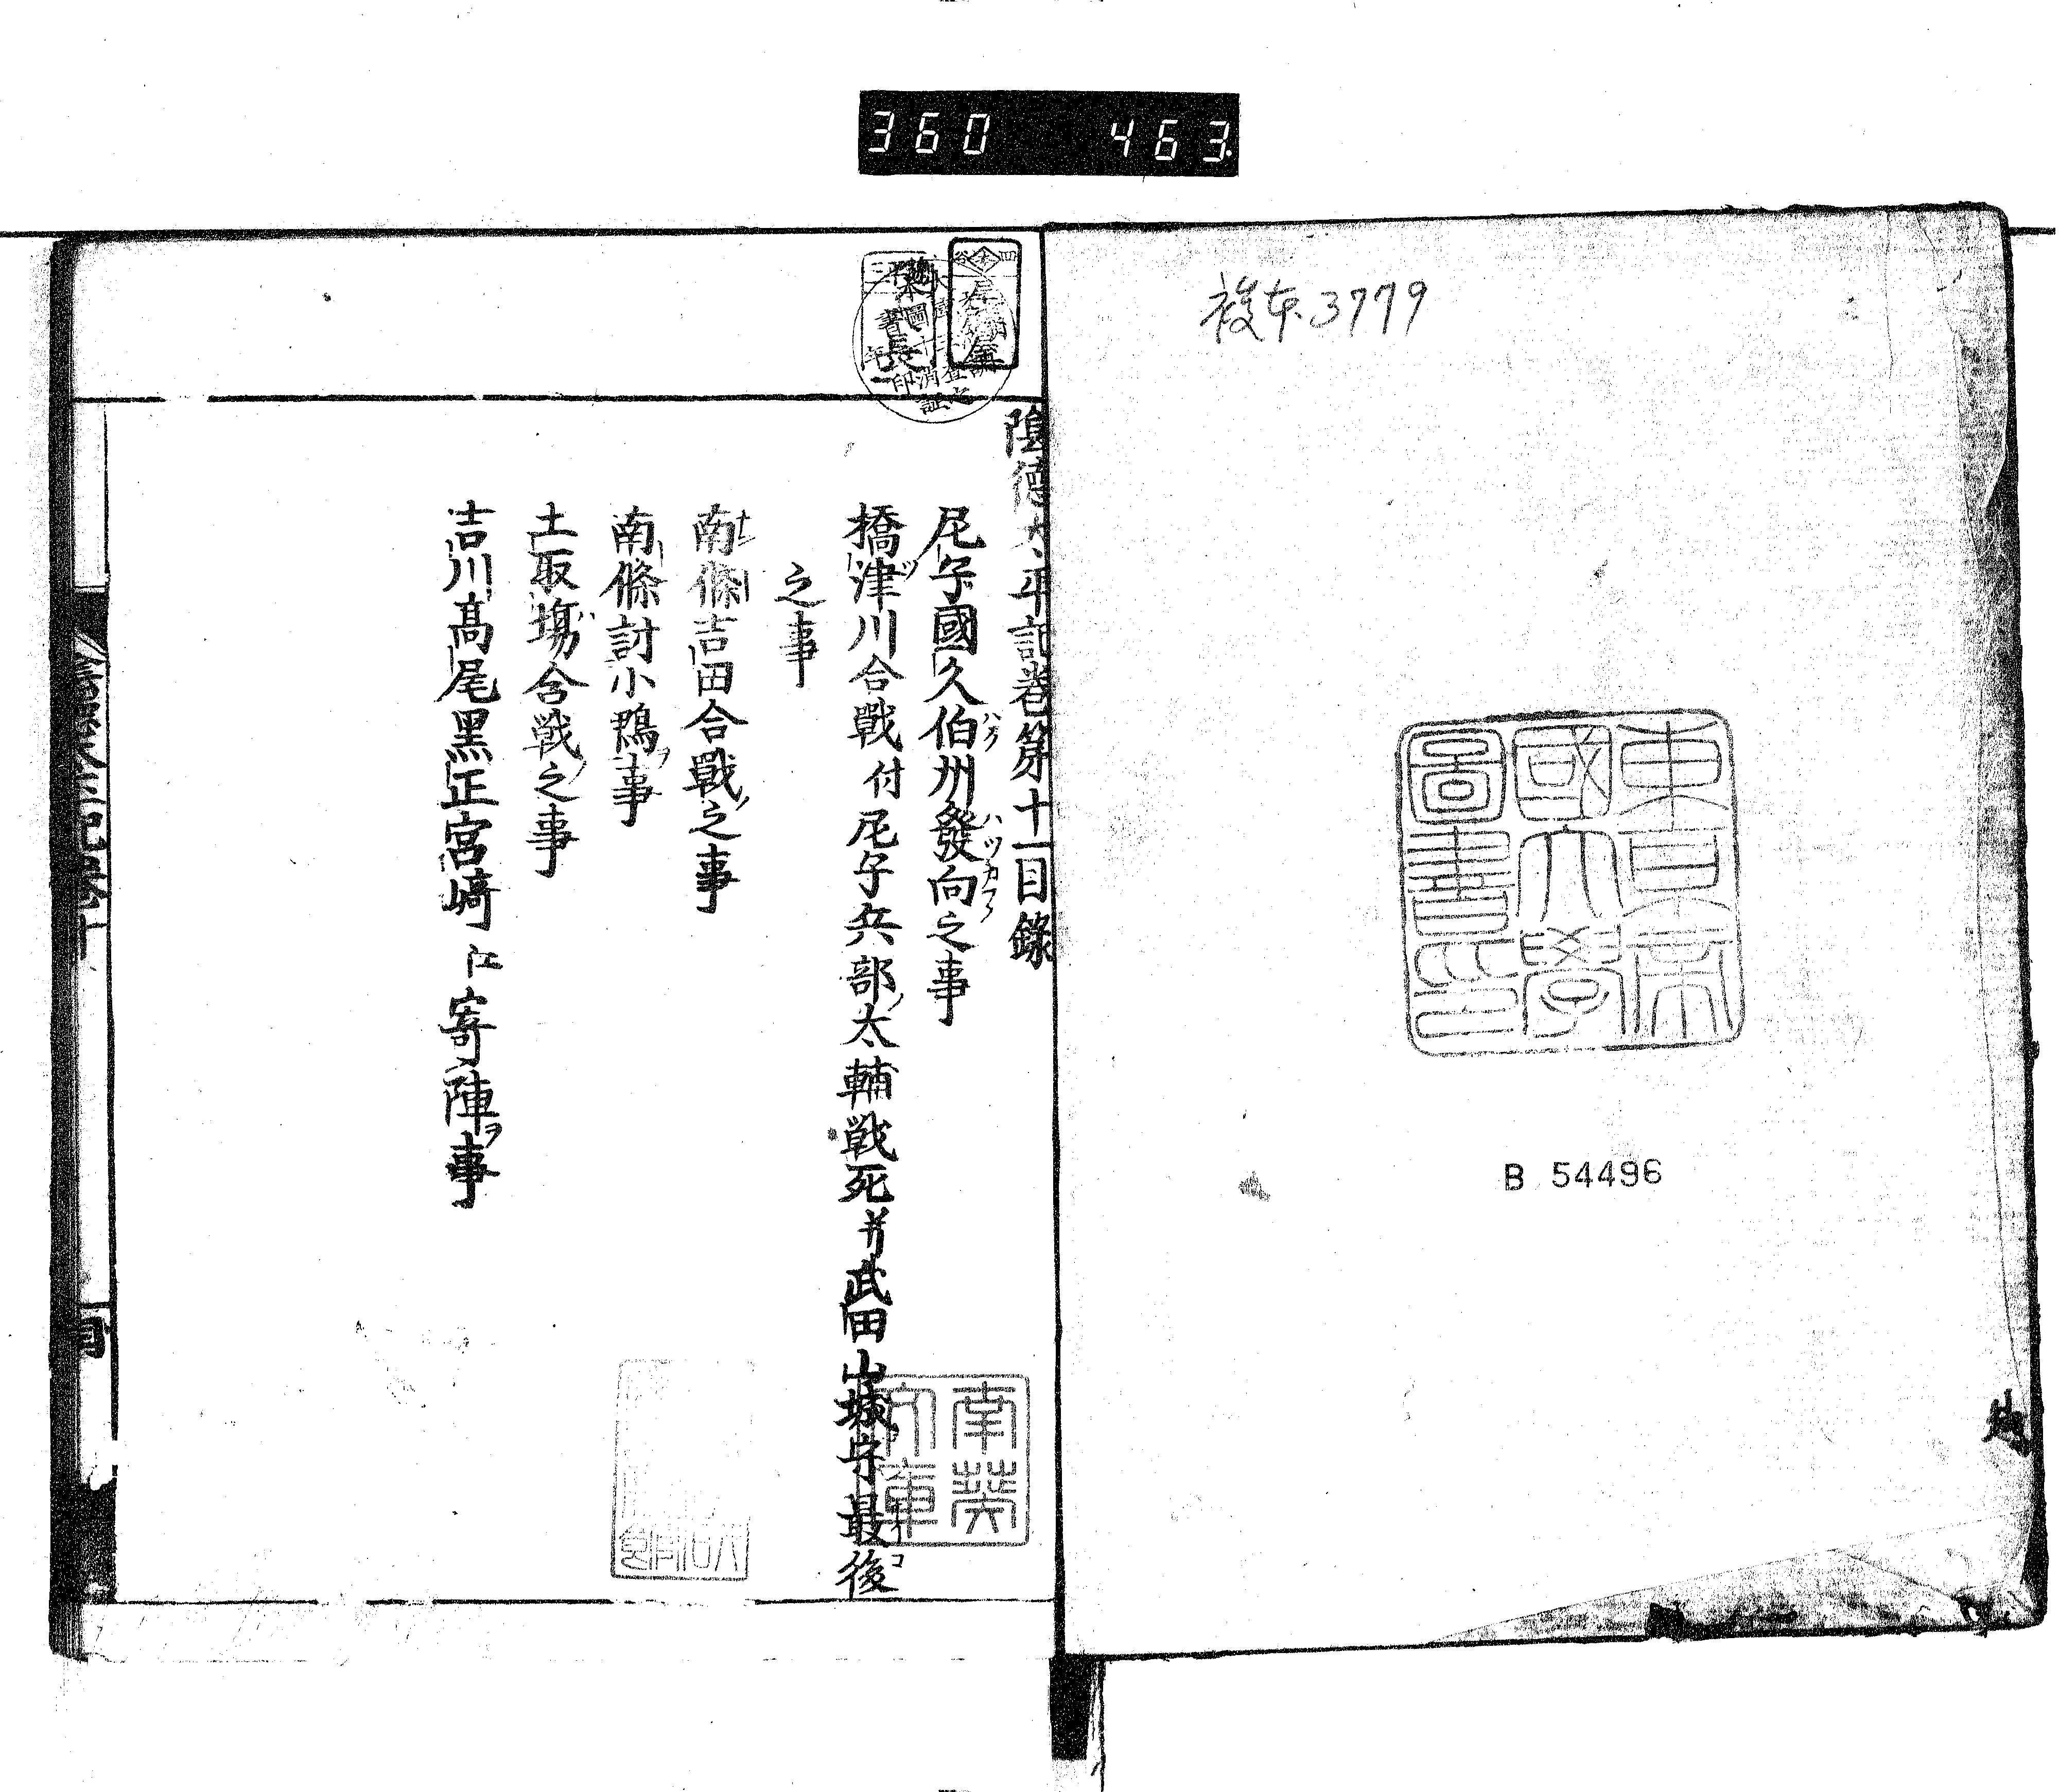 360 463
複本3779
東京
帝國大學
圖書印
B 54496
陰徳太平記巻第十一目録
尼子國久伯州發向之事
ハク ハツカウ
橋津川合戰付尼子兵部太輔戦死并武田山城守最後
之事
南條吉田合戰之事
南條討小鴨事
土取場合戦之事
吉川高尾黒正宮崎江寄陣事
南葵
文庫